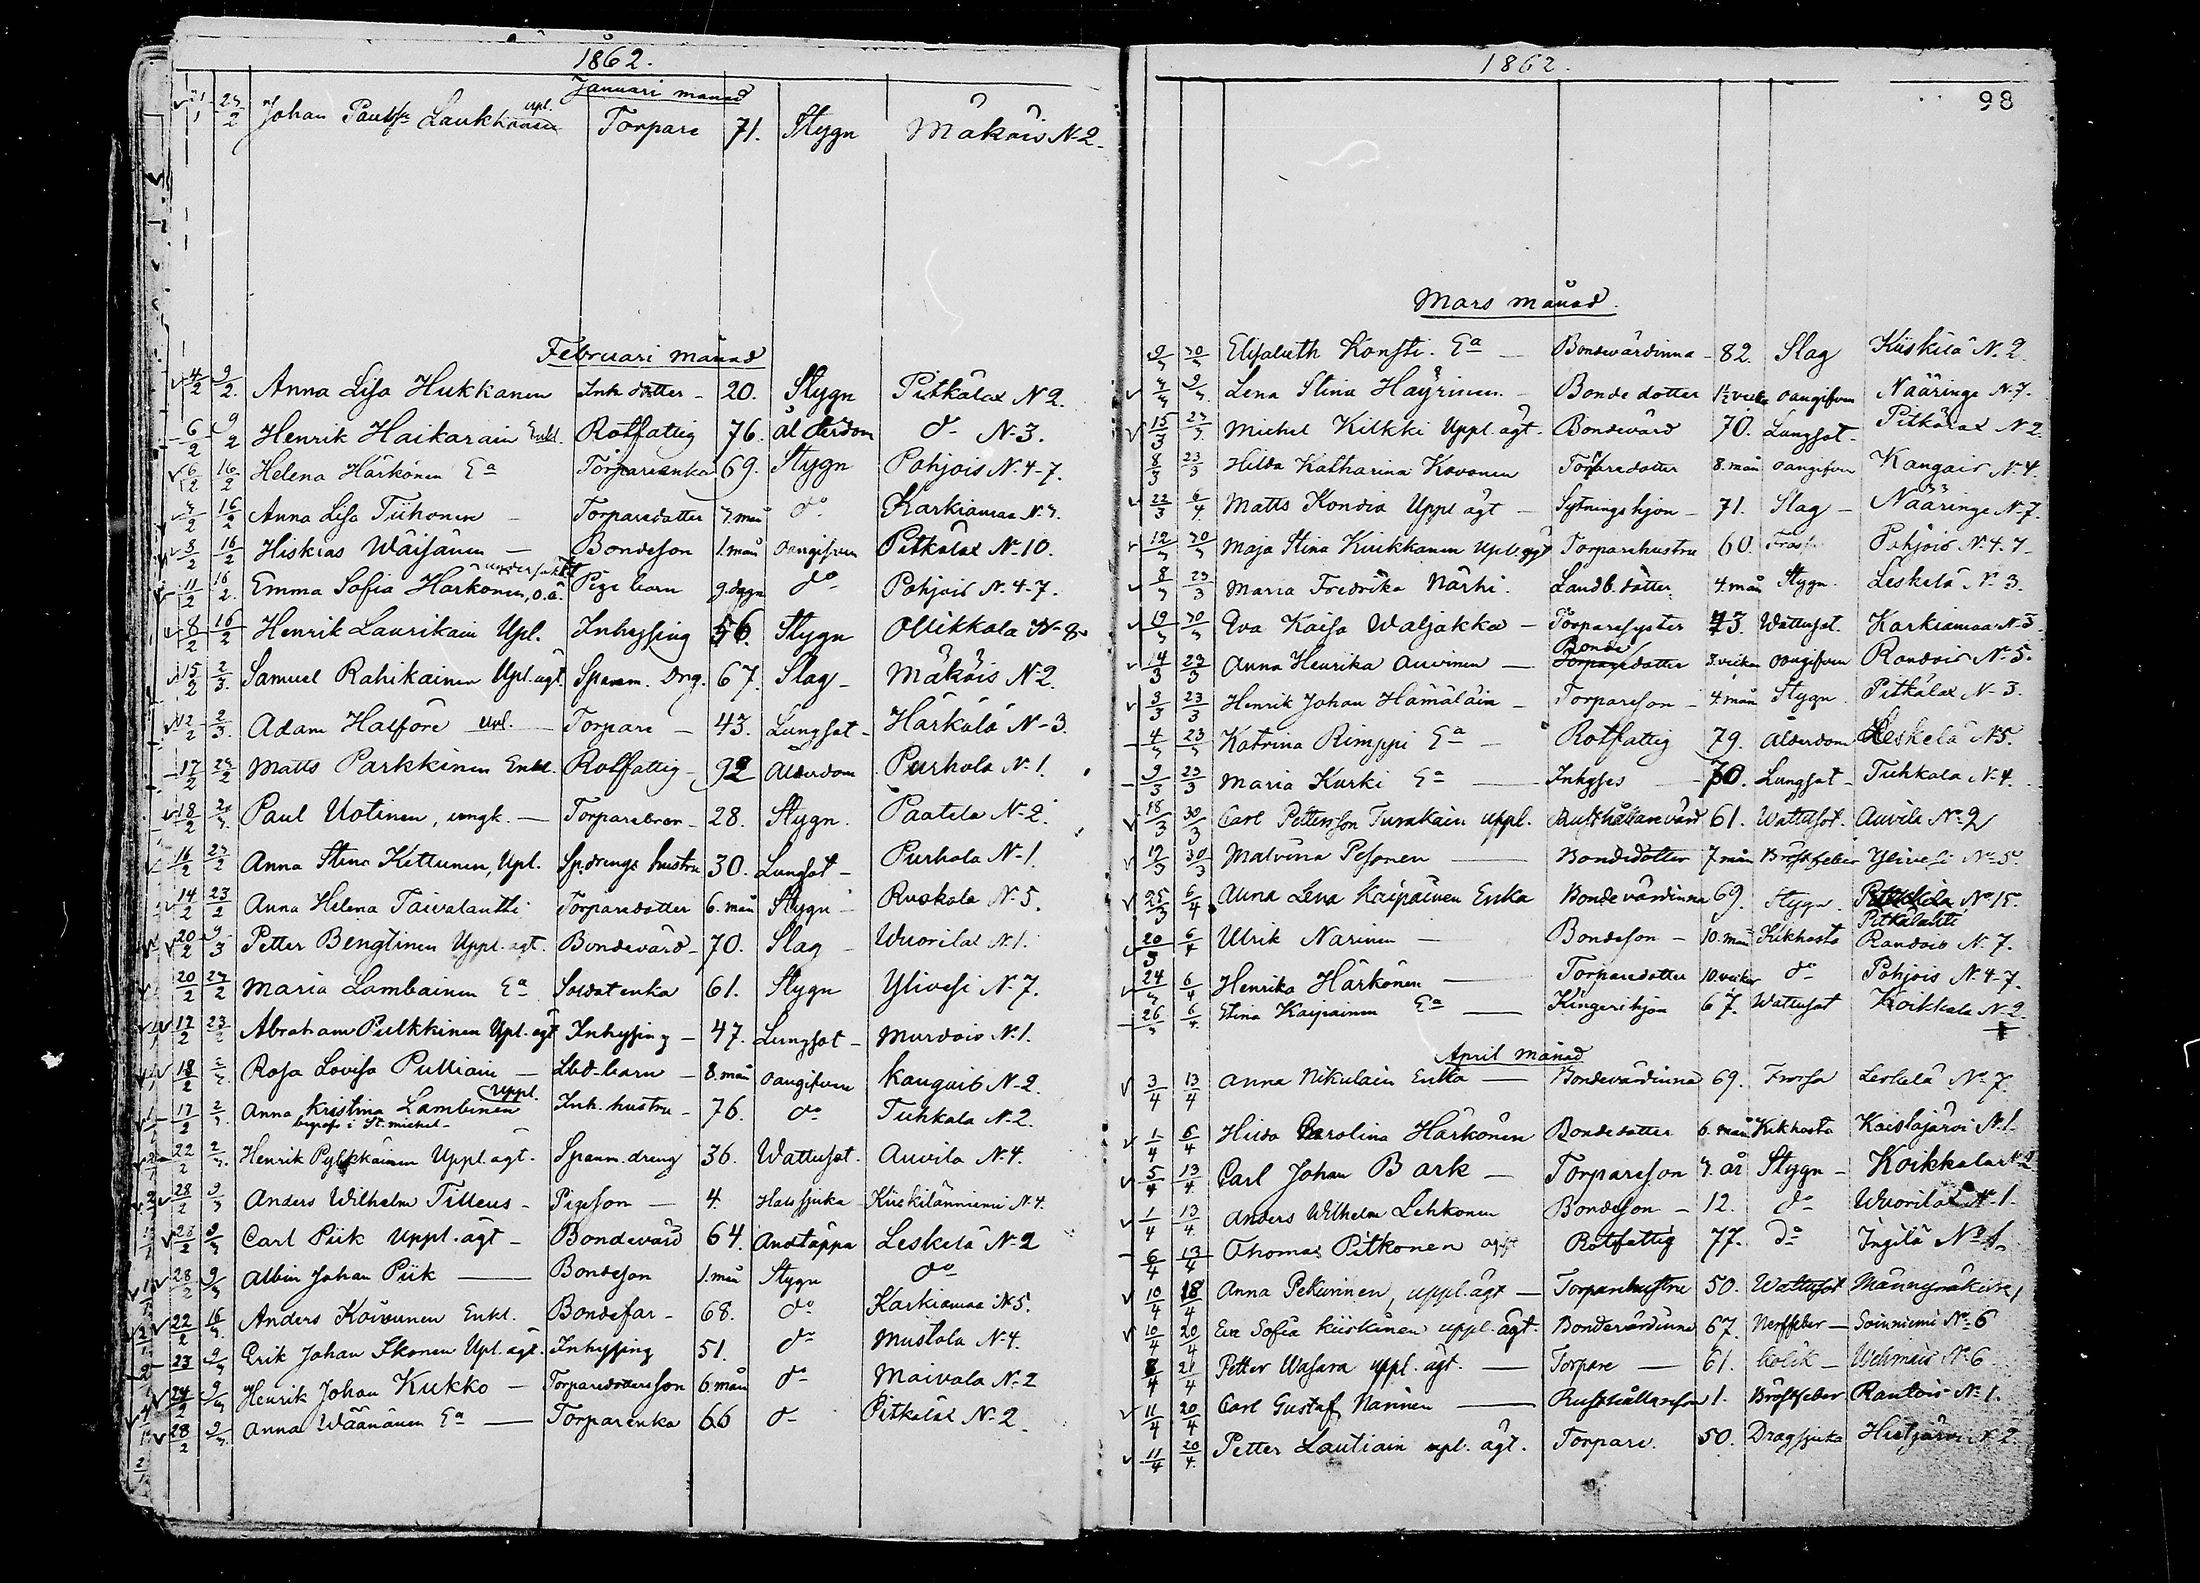 1862.
Januari månad
21/1 23/2 Johan Paulss. Laukkanen upl. Torpare 71. Stygn Mäkois N 2.
Februari månad
4/2 9/2. Anna Lisa Hukkanen Inh dotter - 20. Stygn Pitkälax N 2.
6/2 9/2 Henrik Haikarain Enkl. Rotfattig 76. ålderdom do N 3.
6/2 16/2 Helena Härkönen Ea Torpareenka 69. Stygn Pohjois N. 4-7.
16/2 Anna Lisa Tiihonen - Torparedotter 3. mån do Karkiamaa N. 3.
8/2 16/2 Hiskias Wäisänen — Bondeson 1. mån oangifven Pitkälax N. 10.
11/2 16/2. Emma Sofia Härkönen, o.ä. Pige barn 9. dagn do Pohjois N. 4-7.
8/2 16/2 Henrik Laurikain Upl. Inhysing 56. Stygn Ollikkala N 8
15/2 2/3. Samuel Rahikainen Upl. ägt. Spanm. Dng. 67. Slag - Mäkois N 2.
12/2 2/3. Adam Halfore upl. — Torpare — 43. Lungsot - Härkälä N - 3.
17/2 23/2 Matts Parkkinen Enkl. Rotfattig - 92 Ålderdom Purhola N. 1.
18/2 Paul Uotinen, ungk. — Torparebror - 28. Stygn. Paatela N. 2.
16/2 23/2 Anna Stina Kettunen, Upl. Sp. drengs hustru 30. Lungsot - Purhola N. 1.
14/2 23/2 Anna Helena Taivalantti Torparedotter 6. mån Stygn - Ruokola N. 5.
20/2 9/3 Petter Bengtinen Uppl. ägt. Bondevärd - 70. Slag - Wuorilax N. 1.
20/2 23/2 Maria Lambainen Ea Soldatenka 61. Stygn Ylivesi N. 7.
17/2 23/2 Abraham Pulkkinen Upl. ägt Inhysing - 47. Lungsot - Murdois N. 1.
18/2 2/3. Rosa Lovisa Pulliain — Lbd-barn - 8. mån oangifven Kangais N. 2.
17/2 2/3. Anna Kristina Lambinen Uppl. Inh. hustru - 76. do Tuhkala N. 2.
begrafs i St. Michel -
22/2 2/3. Henrik Pylkkäinen Uppl. ägt. - Spanm. dreng 36. Wattusot. Auvila N. 4.
28/2. 9/3 Anders Wilhelm Tilleus - Pigeson — 4. Halssjuka - Kiiskilänniemi N. 4.
28/2 9/3 Carl Piik Uppl. ägt - Bondevärd 64. Andtäppa Leskelä N. 2
28/2 9/3 Albin Johan Piik — Bondeson 1. mån Stygn do
22/2 16/3. Anders Koivunen Enkl. Bondefar - 68. do Karkiamaa N 5.
23 9/3 Erik Johan Ikonen Upl. ägt. Inhysing 51. do Mustola N. 4.
24/2 9/3 Henrik Johan Kukko — Torparedottersson 6. mån do Maivala N. 2
28/2 9/3. Anna Wäänänen Ea — Torparenka 66 do Pitkälax N. 2
1862.
98
Mars månad.
9/3 30/3 Elisabeth Konsti. Ea — Bondevärdinna - 82. Slag Kiiskilä N. 2
9/3. Lena Stina Häyrinen. - Bonde dotter 1½ veck oangifven Nääringe N. 7.
15/3 23/3. Michel Kilkki Uppl. ägt. Bondevärd 70. Lungsot - Pitkälax N 2
8/3 23/3 Hilda Katharina Kovonen Torparedotter 8. mån oangifven Kangais N. 4.
22/3 6/4. Matts Kondia Uppl ägt - Sytningshjon - 71. Slag - Nääringe N. 7.
12/3 30/3 Maja Stina Kuikkanen Upl. ägt Torparehustru 60. Frossa Pohjois N. 4. 7
8/3 23/3 Maria Fredrika Närhi. Landb. dotter 4. mån Stygn. Leskelä N. 3.
19/3 30/3 Eva Kaisa Waljakka — Torparesyster 43. Wattusot. Karkiamaa N. 3.
14/3 23/3 Anna Henrika Auvinen — Bonde dotter 3. veckor oangifven Randois N. 5.
3/3 23/3 Henrik Johan Hämäläin - Torpareson - 4 mån Stygn. Pitkälax N - 3.
4/3 23/3 Katrina Rimppi Ea — Rotfattig 79. Ålderdom Leskelä N 5.
9/3 23/3 Maria Kurki Ea — Inhyses - 70. Lungsot - Tuhkala N. 4.
18/3 30/3 Carl Pettersson Turakain uppl. Rusthållarevärd 61. Wattusot. Auvila N. 2
19/3 30/3 Malvina Pesonen — Bondedotter 7 mån Bröstfeber Ylivesi No 5.
25/3 6/4 Anna Lena Kaipainen Enka Bondevärdinna 69. Stygn. No 15.
Pitkälahti
20/3 6/4 Ulrik Narinen — Bondeson — 10. mån Kikhosta Randois N. 7.
24/3 6/4 Henrika Härkönen — Torparedotter 10. veckor do Pohjois N. 4-7.
26/3 6/4. Stina Kaipainen Ea — Kingerihjon 67. Wattusot Koikkala N. 2
April månad
3/4 13/4 Anna Nikulain Enka — Bondevärdinna 69. Frossa Leskelä No 7
1/4 6/4 Hilda Carolina Härkönen Bondedotter 6. mån Kikhosta Kaislajärvi N. 1.
5/4 13/4. Carl Johan Bark — Torpareson 3. år Stygn - Koikkala N. 2
1/4 13/4. Anders Wilhelm Lehkonen Bondeson - 12. do Wuorilax N. 1.
6/4 13/4 Thomas Pitkonen ägift Rotfattig 77. do Ingilä No 1.
10/4 18/4 Anna Pekurinen, uppl. ägt — Torparehustru 50. Wattusot Männynmäki N. 1
10/4 20/4 Eva Sofia Kiiskinen uppl. ägt. Bondevärdinna 67. Nerffeber — Soinniemi No 6
8/4 21/4 Petter Wasara uppl. ägt. — Torpare — 61. Kolik — Wehmais No 6
11/4 20/4 Carl Gustaf Närinen — Rusthållareson 1. Bröstfeber Rantois No 1.
11/4 20/4. Petter Lautiain upl. ägt. Torpare. 50. Dragsjuka Hietjärvi N. 2.